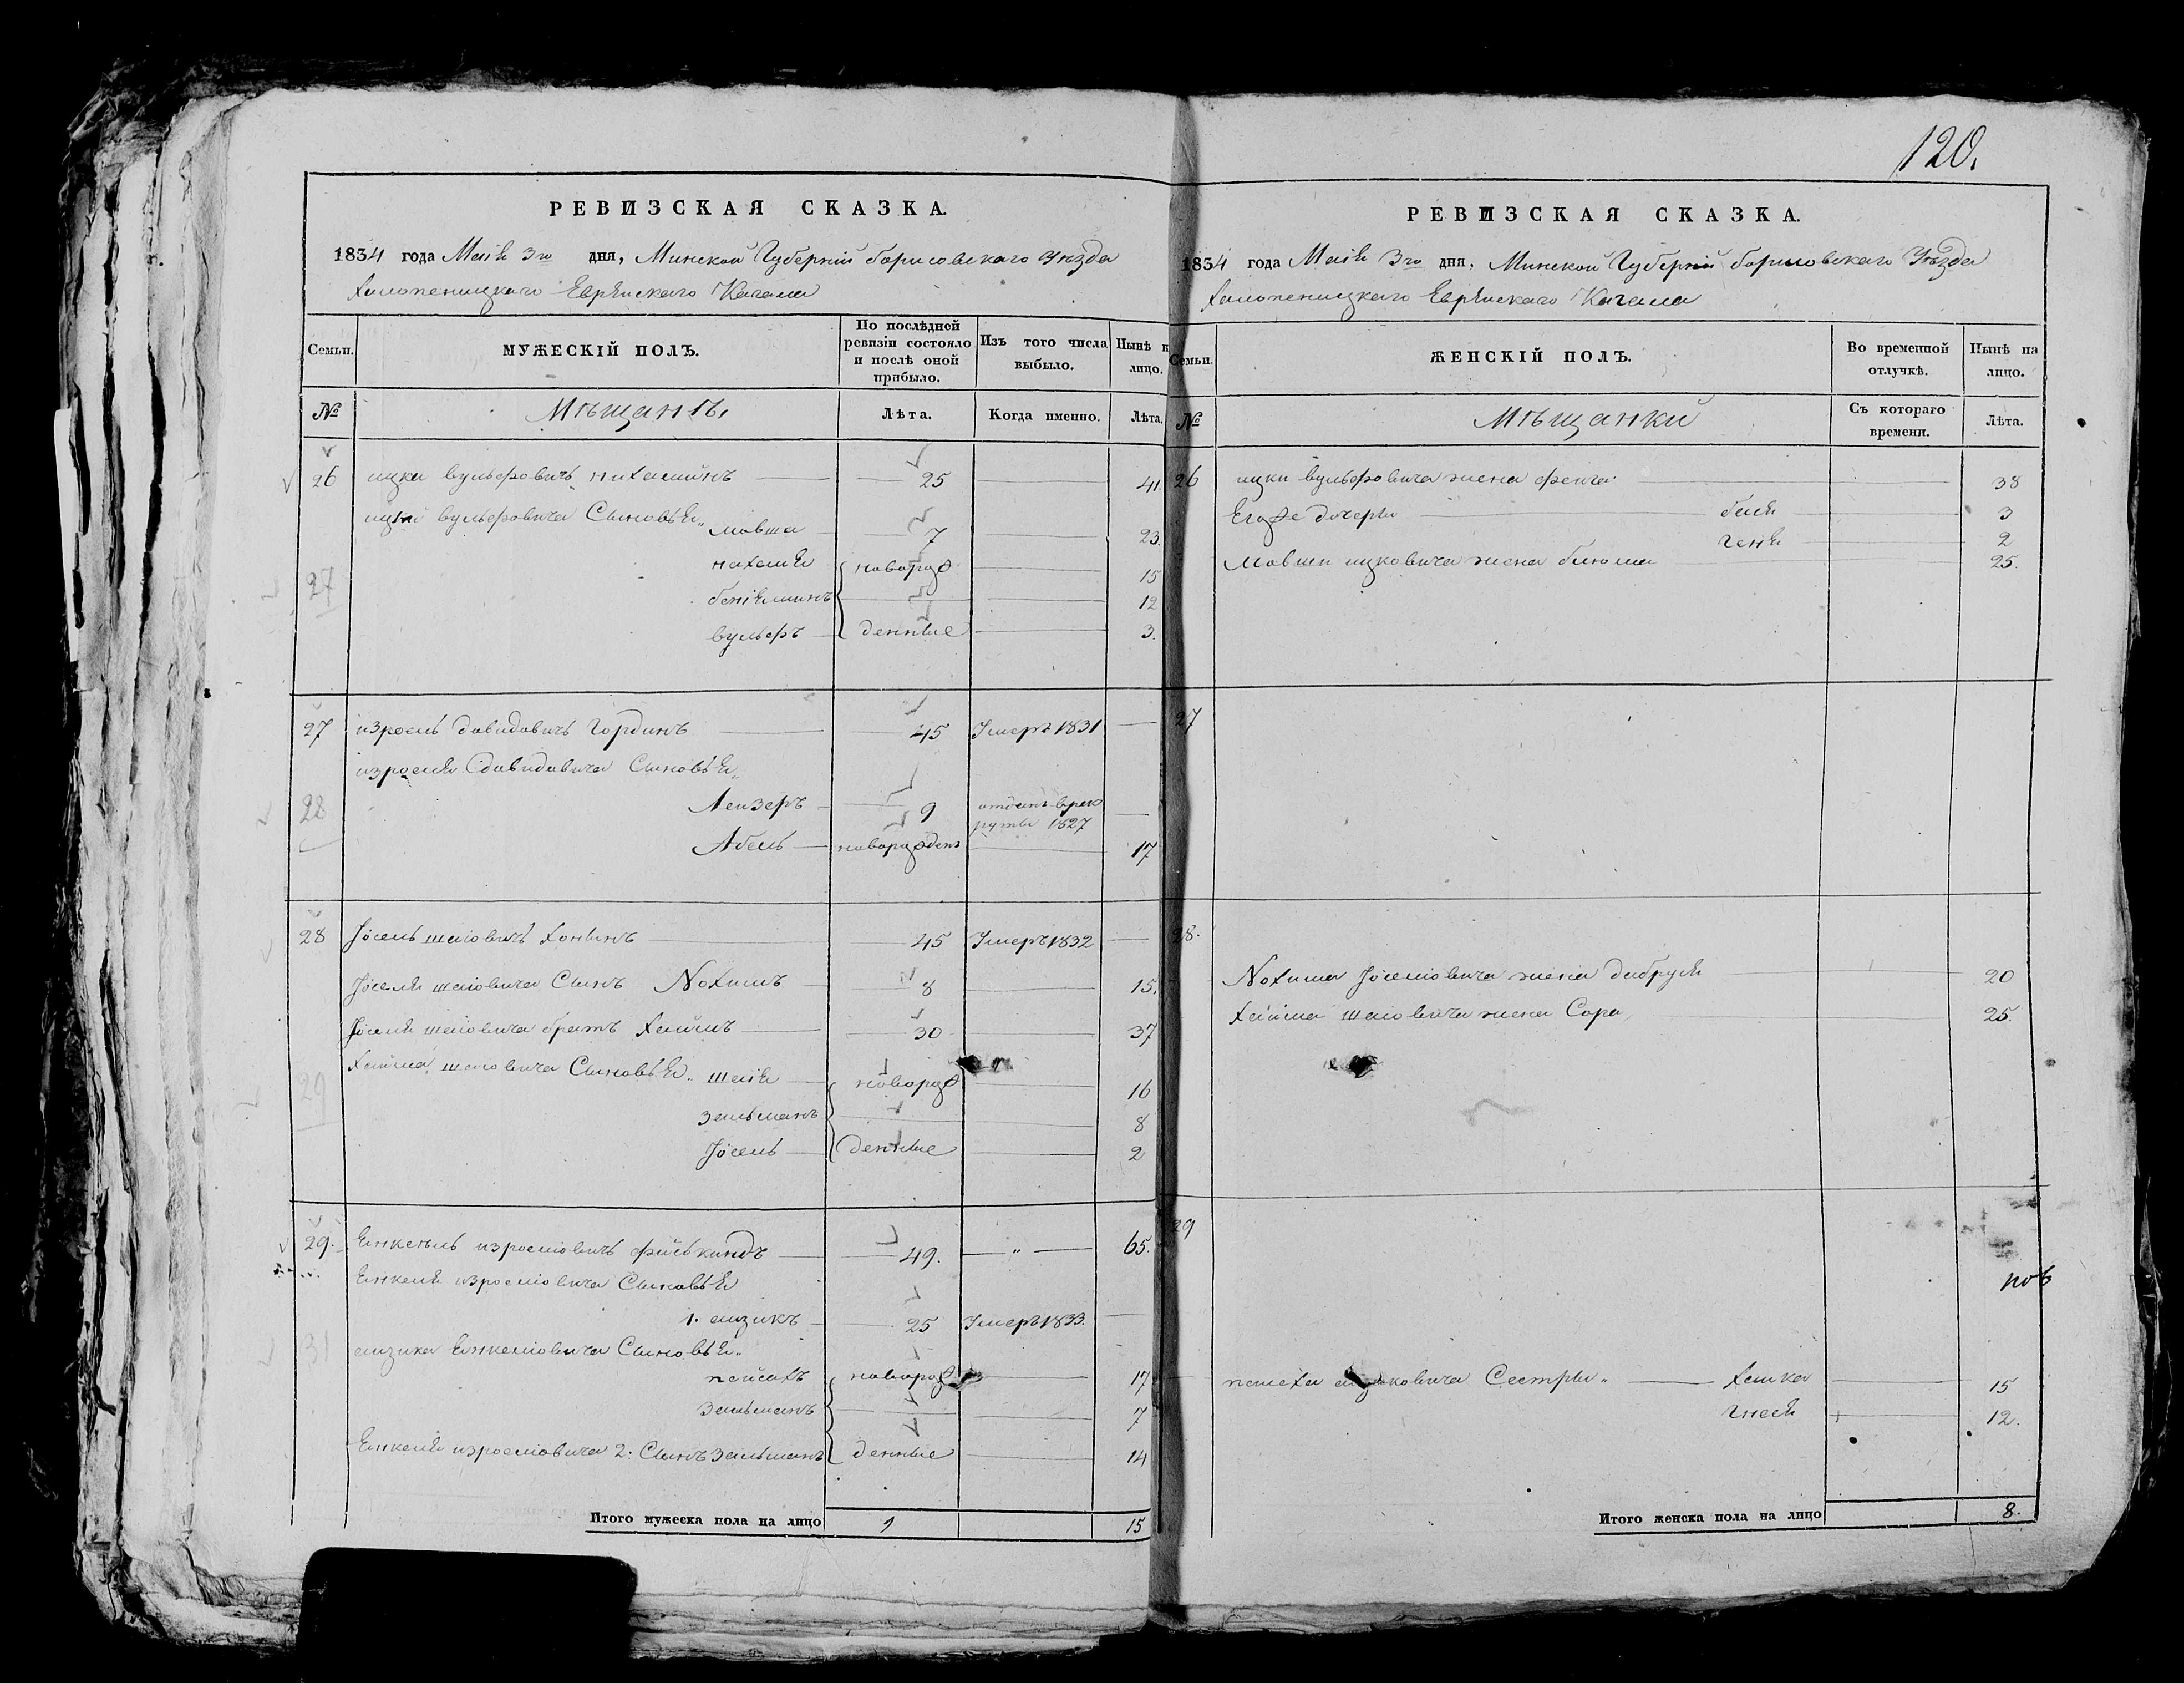 120.
РЕВИЗСКАЯ СКАЗКА.
1834 года Маія 3го дня, Минской Губерній борисовскаго Уѣзда
Халопеницкаго Еврейскаго Кагала
Семьи.
МУЖЕСКІЙ ПОЛЪ.
По послѣдней ревизіи состояло и послѣ оной прибыло.
Изъ того числа выбыло.
Нынѣ н лицо.
№
Мѣщанѣ,
Лѣта.
Когда именно.
Лѣта.
26 ицка вульфовичъ нахаминъ 25 41
вульфовича Сыновья мовша 7 23.
нахамъя новорож 15
27
беніяминъ 12
вульфъ денные 3.
27 израель давидовичъ гординъ 45 Умеръ 1831
израеля давидовича Сыновья
Лейзеръ 9 отданъ врек
28
руты 1827
Абель новорожденъ 17
28 Іосель шаіовичъ хонинъ 45 Умеръ 1832
Іоселя шаіовича Сынъ Nохимъ 8 15.
Іоселя шаіовича братъ хаимъ 30 37
хаима шаіовича Сыновья шаія новорож 16
29
зельманъ 8
Іосель денные 2
29. Енкель израеліовичъ файбкиндъ 49. " 65.
Енкеля израеліовича Сыновья
1. айзикъ 25 Умеръ 1833.
31
айзика Енкеліовича Сыновья
пейсахъ новорож 17
Зельманъ 7
Енкеля израеліовича 2. Сынъ Зельманъ денные 14
Итого мужеска пола на лицо 15
РЕВИЗСКАЯ СКАЗКА.
1834 года Маія 3го дня, Минской Губерній борисовскаго Уѣзда
Халопеницкаго Еврейскаго Кагала
Семьи.
ЖЕНСКІЙ ПОЛЪ.
Во временной отлучкѣ.
Нынѣ на лицо.
№
Мѣщанки
Съ котораго времени.
Лѣта.
26 ицки вульфовича жена фейга 38
Егоже дочеры бася 3
геня 2
мовши ицковича жена блюма 25.
27
28.
Nохима Іоселіовича жена добруся 20
хаима шаіовича жена Сора 25.
29
пейсаха айзиковича Сестры хашка 15
гнеся 12.
Итого женска пола на лицо 8.